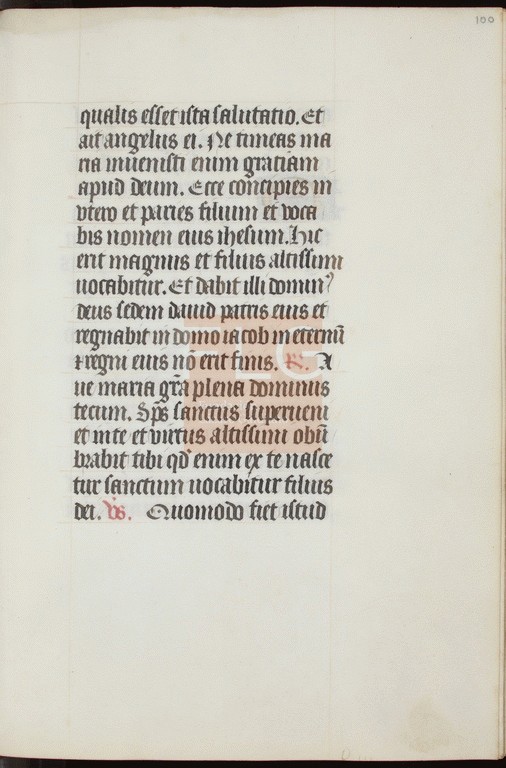 100
qualis esset ista salutatio. Et
ait angelus ei. Ne timeas ma
ria invenisti enim gratiam
apud deum. Ecce concipies in
vtero et paries filium et voca
bis nomen eius ihesum. Hic
erit magnus et filius altissimi
uocabitur. Et dabit illi domin⁹
deus sedem dauid patris eius et
regnabit in domo iacob in eternū
⁊ regni eius nō erit finis. R. A
ue maria grā plena dominus
tecum. Spūs sanctus superueni
et in te et virtus altissimi obū
brabit tibi qd enim ex te nasce
tur sanctum uocabitur filius
dei. Vs. Quomodo fiet istud
FLG